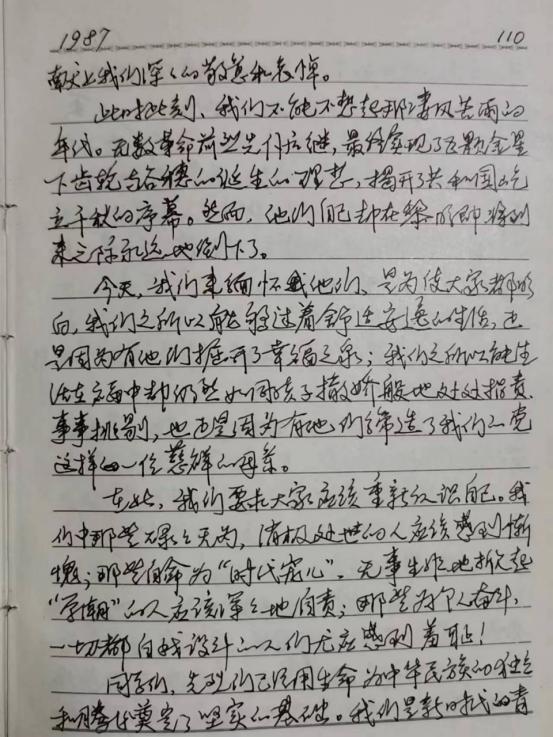 1987 110
献上我们深深的敬意和哀悼。
此时此刻，我们不能不想起那凄风苦雨的
年代。无数革命前辈先仆后继，最终实现了五颗金星
下齿轮与谷穗的诞生的理想，揭开共和国屹
立千秋的序幕。然而，他们自己却在黎明即将到
来之际永远地倒下了。
今天，我们来缅怀他们，是为使大家都明
白，我们之所以能够过着舒适安逸的生活，也
是因为有他们掘开了幸福之泉；我们之所以能生
活在 中却仍然如同孩子撒娇般地处处指责、
事事挑剔，也还是因为有他们缔造了我们的党
这样的一位慈祥的母亲。
在此，我们要求大家应该重新认识自己。我
们中那些 无为，消极处世的人应该感到惭
愧；那些自命为“时代宠儿”、无事生非地掀起
“学潮”的人应该深深地自责；那些为个人奋斗，
一切都自我设计的人们尤应感到羞耻！
同学们，先烈们已经用生命为中华民族的独立
和腾飞奠定了坚实的基础。我们是新时代的青